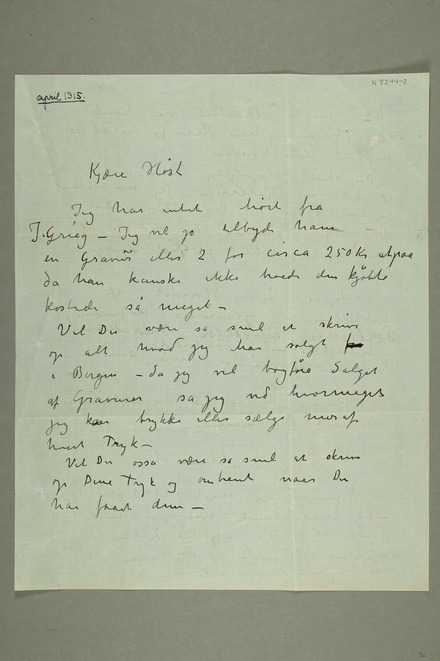 N 3244-2
april 1915.
Kjære Høst
Jeg har intet hørt fra
J. Grieg – Jeg vil jo tilbyde ham
en Gravūr eller 2 for circa 250 Kr
da han kanske ikke havde den kjøbte
kostede så meget –
Vil Du være så snil at skrive
op alt hvad jeg har solgt
i Bergen – da jeg vil bogføre Salget
af Gravurer så jeg ved hvormeget
jeg kan trykke eller sælge mer af
hvert Tryk –
Vil Du også være så snil at skrive
op Dine Tryk og omtrent naar Du
har faaet dem –